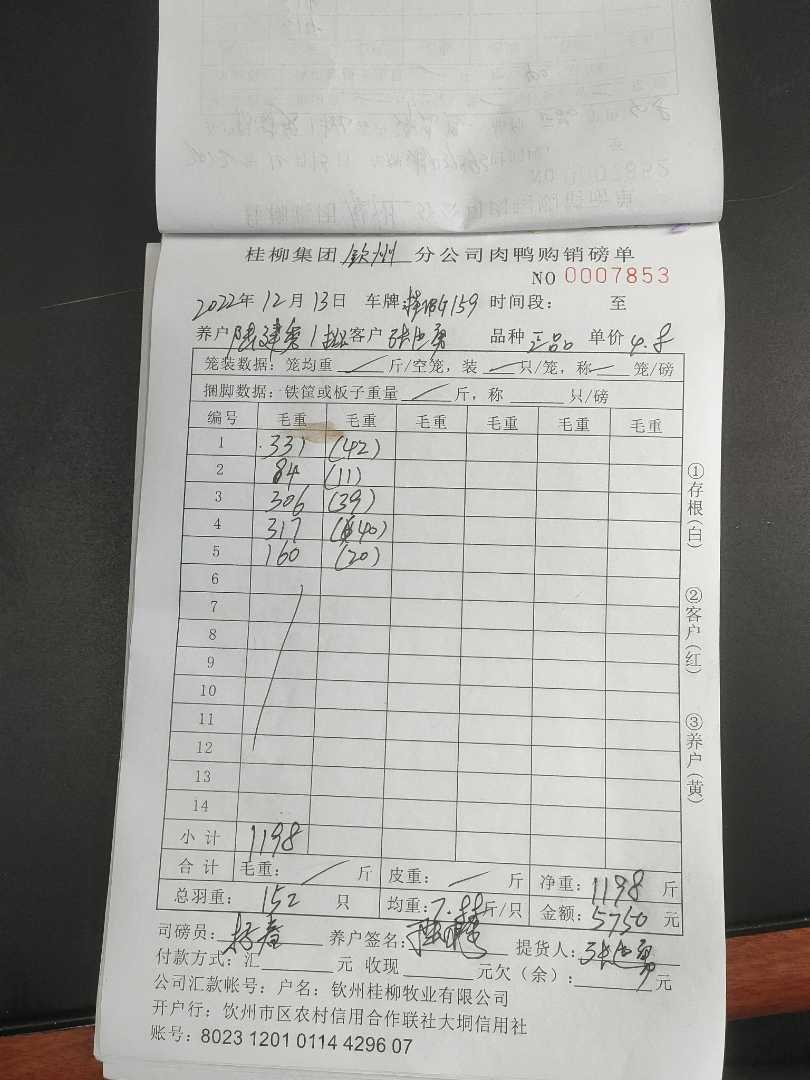 桂柳集团 钦州 分公司肉鸭购销磅单
NO 0007853
2022年12月13日 车牌: 159 时间段: 至
养户 建 1 客户 张 勇 品种 正品 单价 4.8
笼装数据: 笼均重 / 斤/空笼, 装 / 只/笼, 称 / 笼/磅
捆脚数据: 铁筐或板子重量 / 斤, 称 只/磅
编号 毛重 毛重 毛重 毛重 毛重 毛重
1 331 (42)
2 84 (11)
3 306 (39)
4 317 (40)
5 160 (20)
6
7
8
9
10
11
12
13
14
小计 1198
合计 毛重: / 斤 皮重: / 斤 净重: 1198 斤
总羽重: 152 只 均重: 7.88斤/只 金额: 5750 元
司磅员: 杨春 养户签名: 提货人: 张 勇
付款方式: 汇 元 收现 元欠(余): 元
公司汇款帐号: 户名: 钦州桂柳牧业有限公司
开户行: 钦州市区农村信用合作联社大垌信用社
账号: 8023 1201 0114 4296 07
①存根(白)
②客户(红)
③养户(黄)